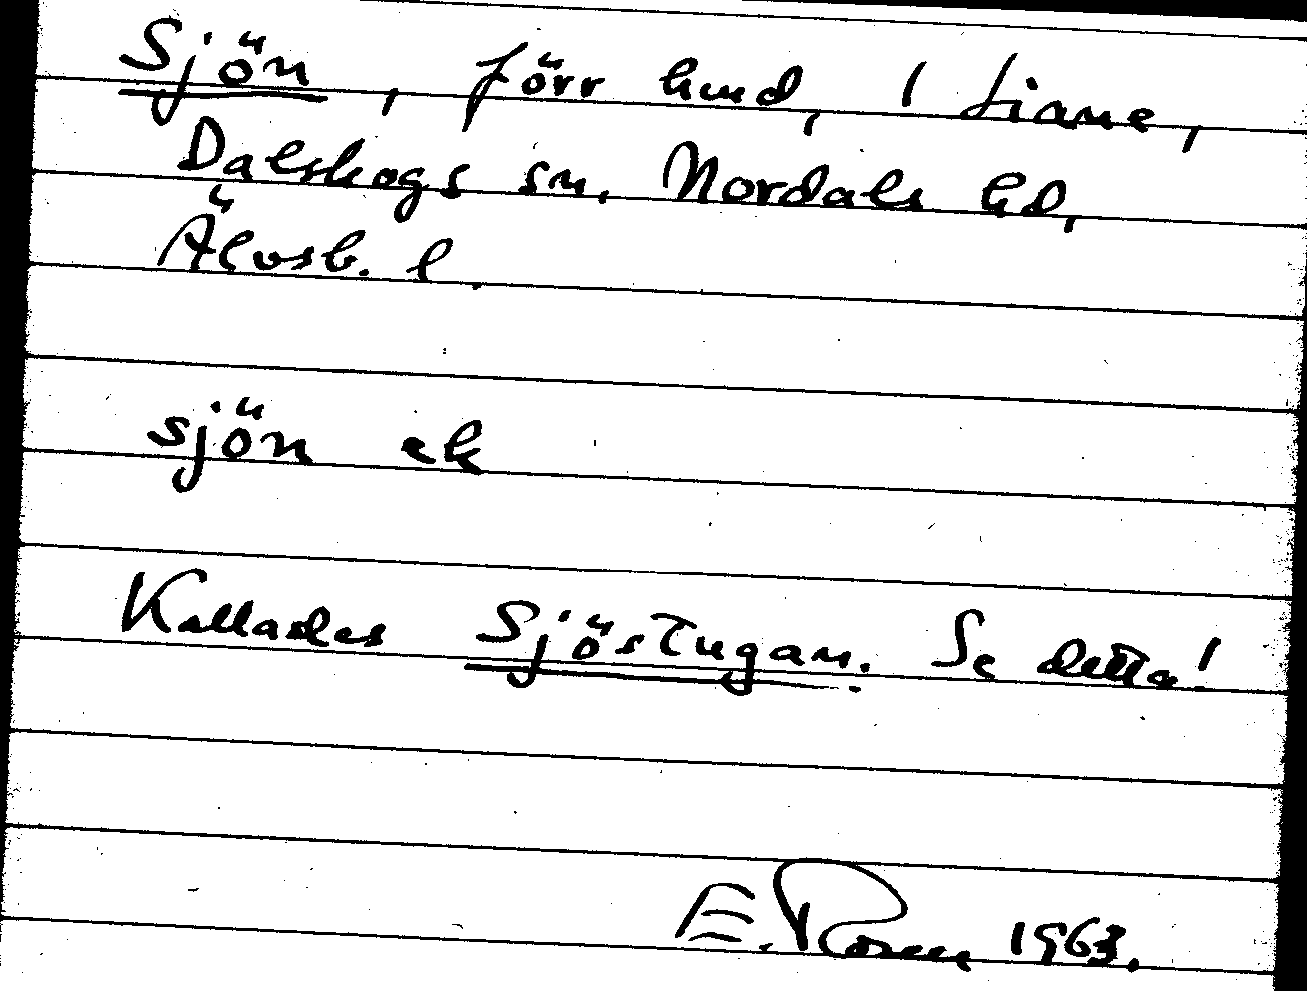 Sjön, förr hmd, 1 Liane,
Dalskogs sn. Nordals hd,
Älvsb. l.
sjön ek
Kallades Sjöstugan. Se detta!
E. Rosen 1963.